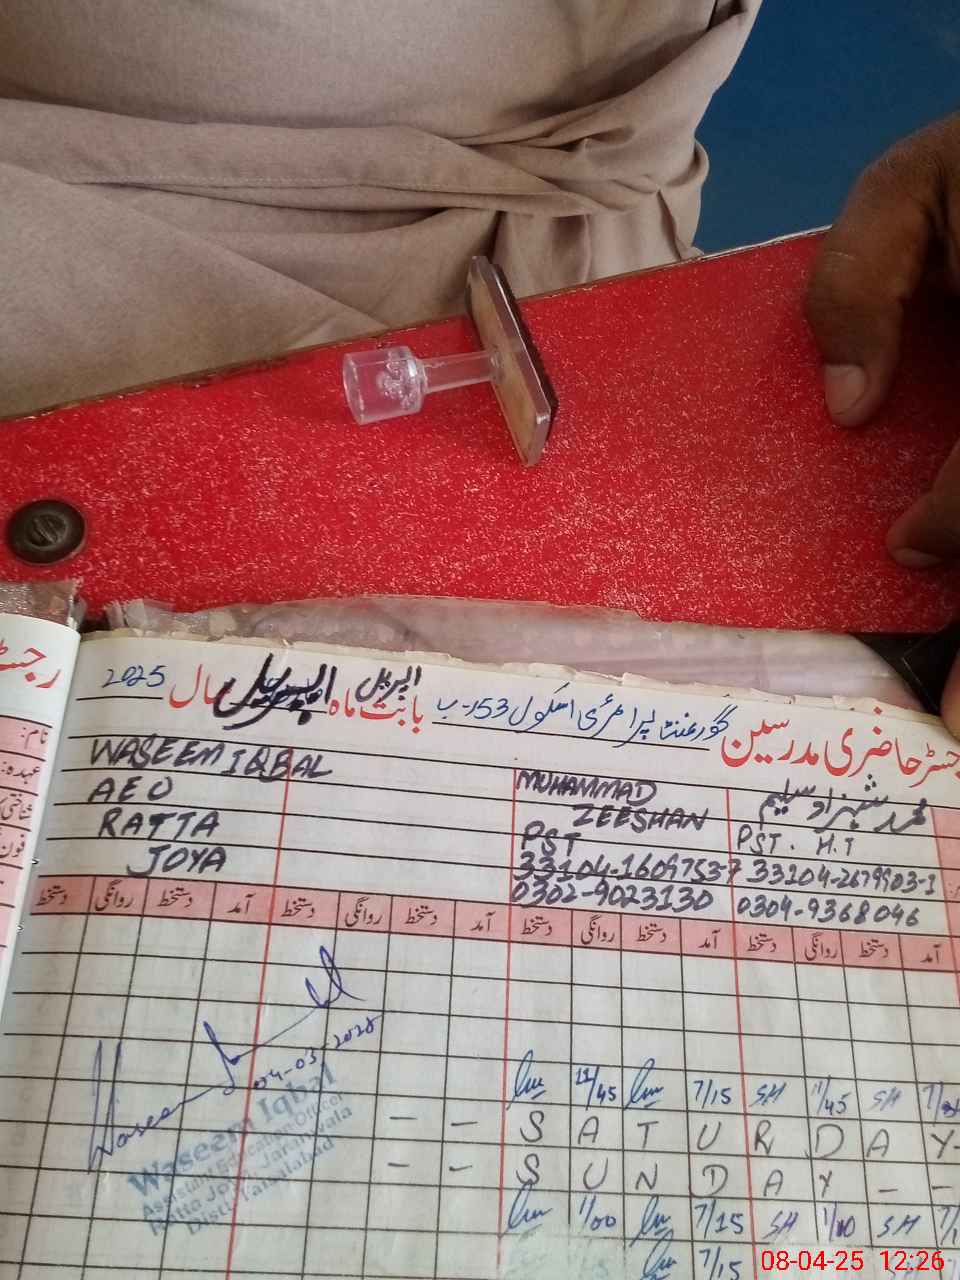 رجسٹر حاضری مدرسین گورنمنٹ پرائمری اسکول 153ر-ب بابت ماہ اپریل سال 2025
WASEEM IQBAL
AEO
RATTA
JOYA
MUHAMMAD
ZEESHAN
PST
33104-1609753-7
0302-9023130
محمد شہزاد سلیم
PST. H.T
33104-2679903-1
0304-9368046
آمد دستخط روانگی دستخط آمد دستخط روانگی دستخط آمد دستخط روانگی دستخط آمد دستخط روانگی دستخط
11/45 7/15 SH 11/45 SH
- - S A T U R D A Y-
- - S U N D A Y - -
1/00 7/15 SH 1/00 SH
7/15
Waseem
04-03-2025
Waseem Iqbal
Assistant Education Officer
Ratta Joya Jaranwala
Distt. Faisalabad
نام:
عہدہ:
08-04-25 12:26